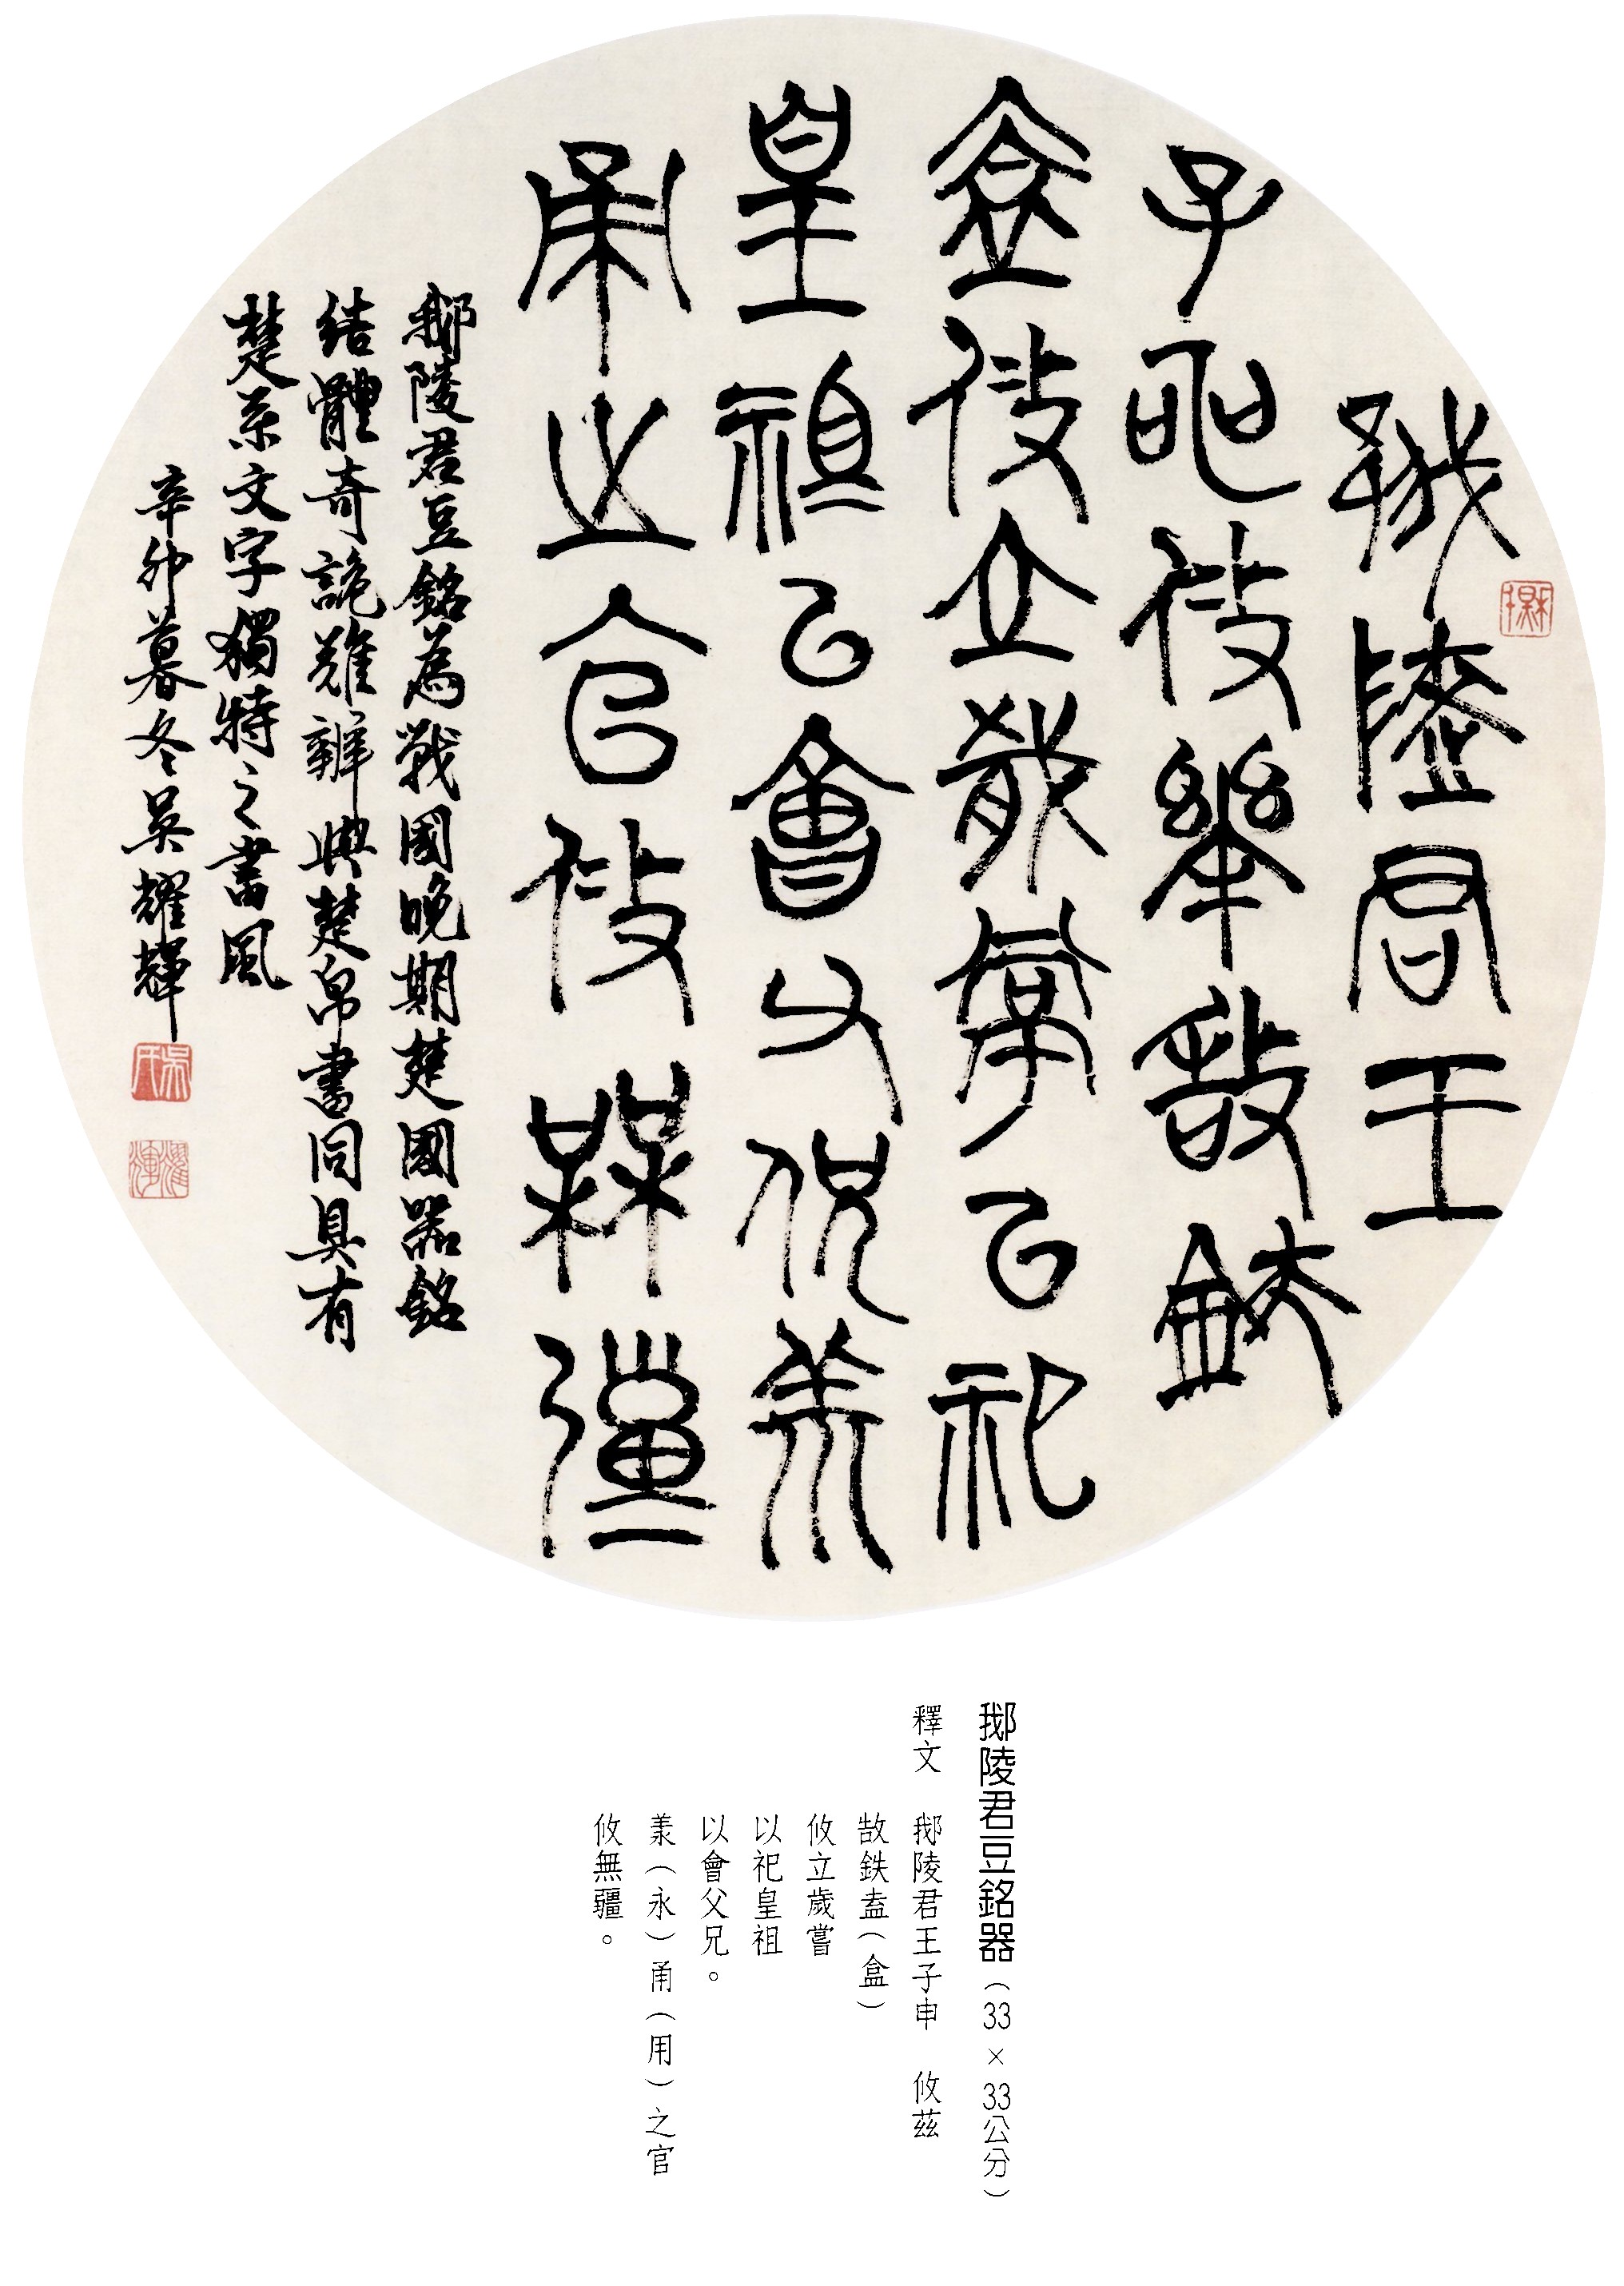 郪陵君王
子申攸茲造鈇
盍攸立歲嘗以祀
皇祖以會父兄羕
甬之官攸無疆
郪陵君豆銘為戰國晚期楚國器銘
結體奇詭難辨與楚帛書同具有
楚系文字獨特之書風
辛卯暮冬吳耀輝
郪陵君豆銘器（33×33公分）
釋文 郪陵君王子申 攸茲
敔鉄盍（盒）
攸立歲嘗
以祀皇祖
以會父兄。
羕（永）甬（用）之官
攸無疆。